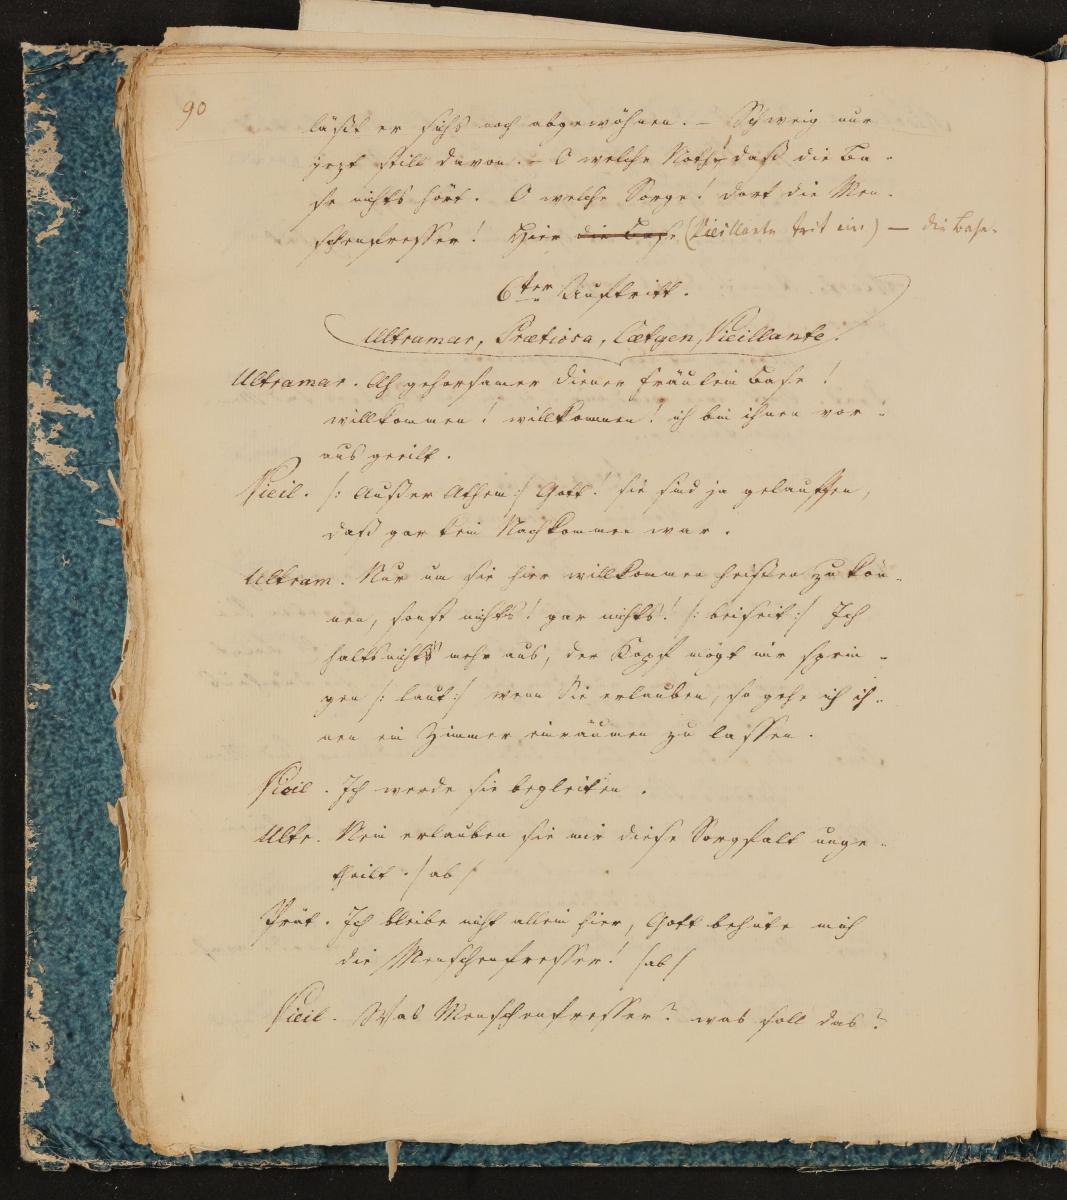 90
läßt er sichs noch abgewöhnen. – Schweig nur
jezt still davon. – O welche Noth! daß die Ba-
se nichts hört. O welche Sorge! dort die Men-
schenfresser! Hier die Base (Vieillante trit ein) — die Base.
6ter Auftritt.
Ultramar, Prætiosa, Cætgen, Vieillante.
Ultramar. Ah gehorsamer Diener Fräulein Base!
willkommen! willkommen! ich bin ihnen vor-
aus geeilt.
Vieil. /: Außer Athem :/ Gott! sie sind ja gelauffen,
daß gar kein Nachkommen war.
Ultram. Nur um sie hier willkommen heißen zu kön-
nen, sonst nichts! gar nichts! /: beiseit :/ Ich
halts nicht mehr aus, der Kopf mögt mir sprin-
gen /: laut :/ wenn Sie erlauben, so gehe ich ih-
nen ein Zimmer einräumen zu lassen.
Vieil. Ich werde sie begleiten.
Ultr. Nein erlauben sie mir diese Sorgfalt unge-
theilt. /ab/
Prät. Ich bleibe nicht allein hier, Gott behüte mich
die Menschenfresser! /ab/
Vieil. Was Menschenfresser? was soll das?